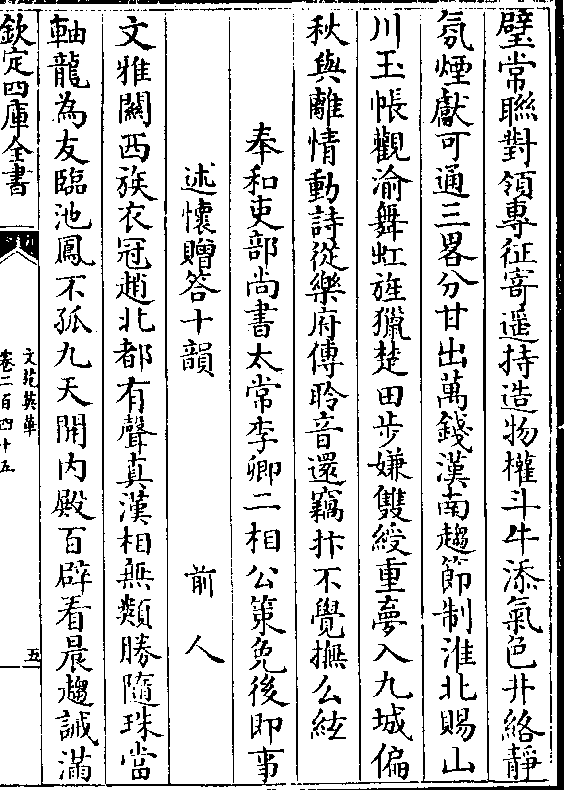 璧常聯對領專征寄遥持造物權斗牛添氣色井絡靜
氛煙獻可通三畧分甘出萬錢漢南趨節制淮北賜山
川玉帳觀渝舞虹旌獵楚田步嫌雙綬重夢入九城偏
秋與離情動詩從樂府傳聆音還竊抃不覺撫么絃
奉和吏部尚書太常李卿二相公策免後即事
述懷贈答十韻 前人
文雅關西族衣冠趙北都有聲真漢相無纇勝隨珠當
軸龍為友臨池鳳不孤九天開内殿百辟看晨趨誡滿
欽定四庫全書
文苑英華
卷二百四十五
五